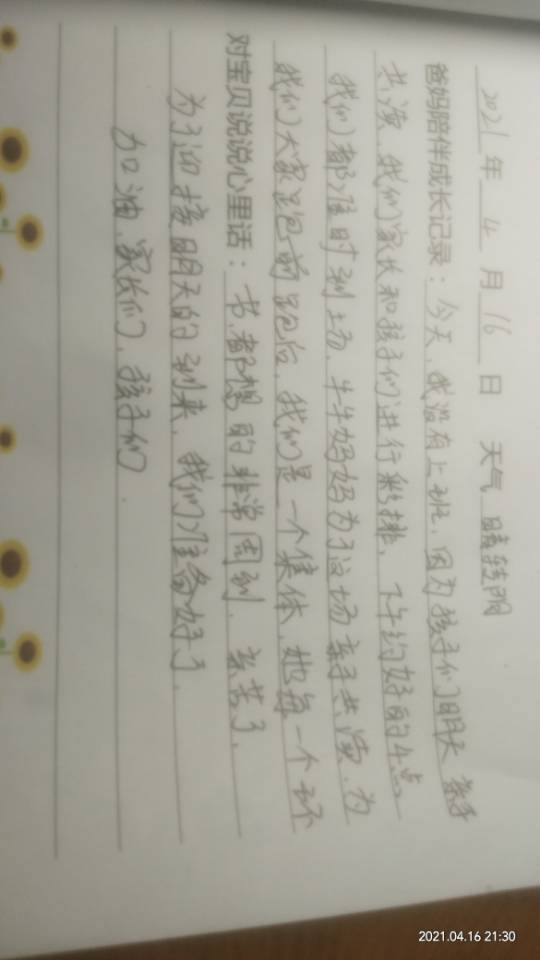 2021年4月16日 天气 晴转阴
爸妈陪伴成长记录：今天，我没有上班，因为孩子们明天亲子
共演，我们家长和孩子们进行彩排，下午约好的4点
我们都准时到场，牛牛妈妈为了这场亲子共演，为
我们大家跑前跑后，我们是一个集体，她每一个环
对宝贝说说心里话：节，都想的非常周到，辛苦了，
为了迎接明天的到来，我们准备好了，
加油，家长们，孩子们．
2021.04.16 21:30